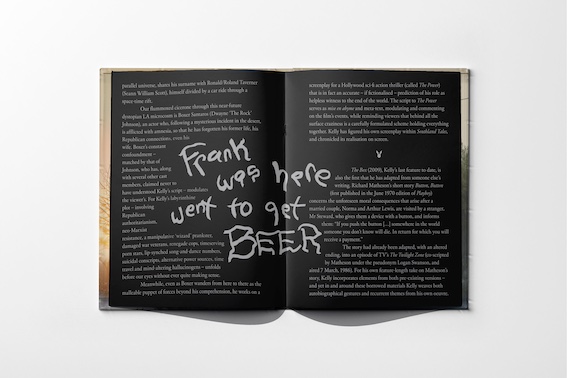 parallel universe, shares his surname with Ronald/Roland Taverner
(Seann William Scott), himself divided by a car ride through a
space-time rift.
Our flummoxed cicerone through this near-future
dystopian LA microcosm is Boxer Santaros (Dwayne 'The Rock'
Johnson), an actor who, following a mysterious incident in the desert,
is afflicted with amnesia, so that he has forgotten his former life, his
Republican connections, even his
wife. Boxer's constant
confoundment –
matched by that of
Johnson, who has, along
with several other cast
members, claimed never to
have understood Kelly's script – modulates
the viewer's. For Kelly's labyrinthine
plot – involving
Republican
authoritarianism,
neo-Marxist
resistance, a manipulative 'wizard' prankster,
damaged war veterans, renegade cops, timeserving
porn stars, lip-synched song and dance numbers,
suicidal conscripts, alternative power sources, time
travel and mind-altering hallucinogens – unfolds
before our eyes without ever quite making sense.
Meanwhile, even as Boxer wanders from here to there as the
malleable puppet of forces beyond his comprehension, he works on a
Frank
was here
went to get
BEER
screenplay for a Hollywood sci-fi action thriller (called The Power)
that is in fact an accurate – if fictionalised – prediction of his role as
helpless witness to the end of the world. The script to The Power
serves as mise en abyme and meta-text, modulating and commenting
on the film's events, while reminding viewers that behind all the
surface craziness is a carefully formulated scheme holding everything
together. Kelly has figured his own screenplay within Southland Tales,
and chronicled its realisation on screen.
V
The Box (2009), Kelly's last feature to date, is
also the first that he has adapted from someone else's
writing. Richard Matheson's short story Button, Button
(first published in the June 1970 edition of Playboy)
concerns the unforeseen moral consequences that arise after a
married couple, Norma and Arthur Lewis, are visited by a stranger,
Mr Steward, who gives them a device with a button, and informs
them: "If you push the button [...] somewhere in the world
someone you don't know will die. In return for which you will
receive a payment."
The story had already been adapted, with an altered
ending, into an episode of TV's The Twilight Zone (co-scripted
by Matheson under the pseudonym Logan Swanson, and
aired 7 March, 1986). For his own feature-length take on Matheson's
story, Kelly incorporates elements from both pre-existing versions –
and yet in and around these borrowed materials Kelly weaves both
autobiographical gestures and recurrent themes from his own oeuvre,